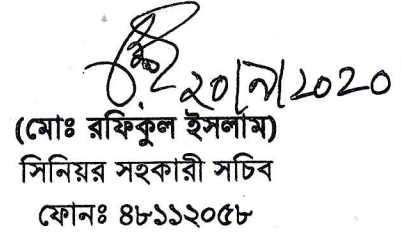 ২০/৭/২০২০
(মোঃ রফিকুল ইসলাম)
সিনিয়র সহকারী সচিব
ফোনঃ ৪৮১১২০৫৮